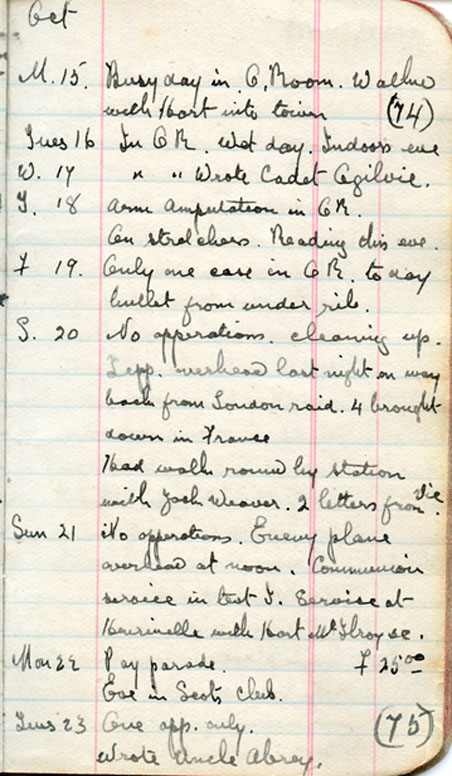 Oct
M. 15. Busy day in O. Room. Walked
with Hart into town (74)
Tues 16 In OR. Wet day. Indoors eve
W. 17 " " Wrote Cadet Ogilvie.
T. 18 Arm Amputation in OR.
On stretchers. Reading this eve.
F 19. Only one case in OR. to day
bullet from under rib.
S. 20 No opperations. cleaning up.
Zepp. overhead last night on way
back from London raid. 4 brought
down in France
Had walk round by station
with Jack Weaver. 2 letters from Vic.
Sun 21 No opperations. Enemy plane
overhead at noon. Communion
service in tent T. Service at
with Hart
Mon 22 Pay parade. F 25.00
Eve in Scots Club.
Tues 23 One opp. only. (75)
Wrote Uncle